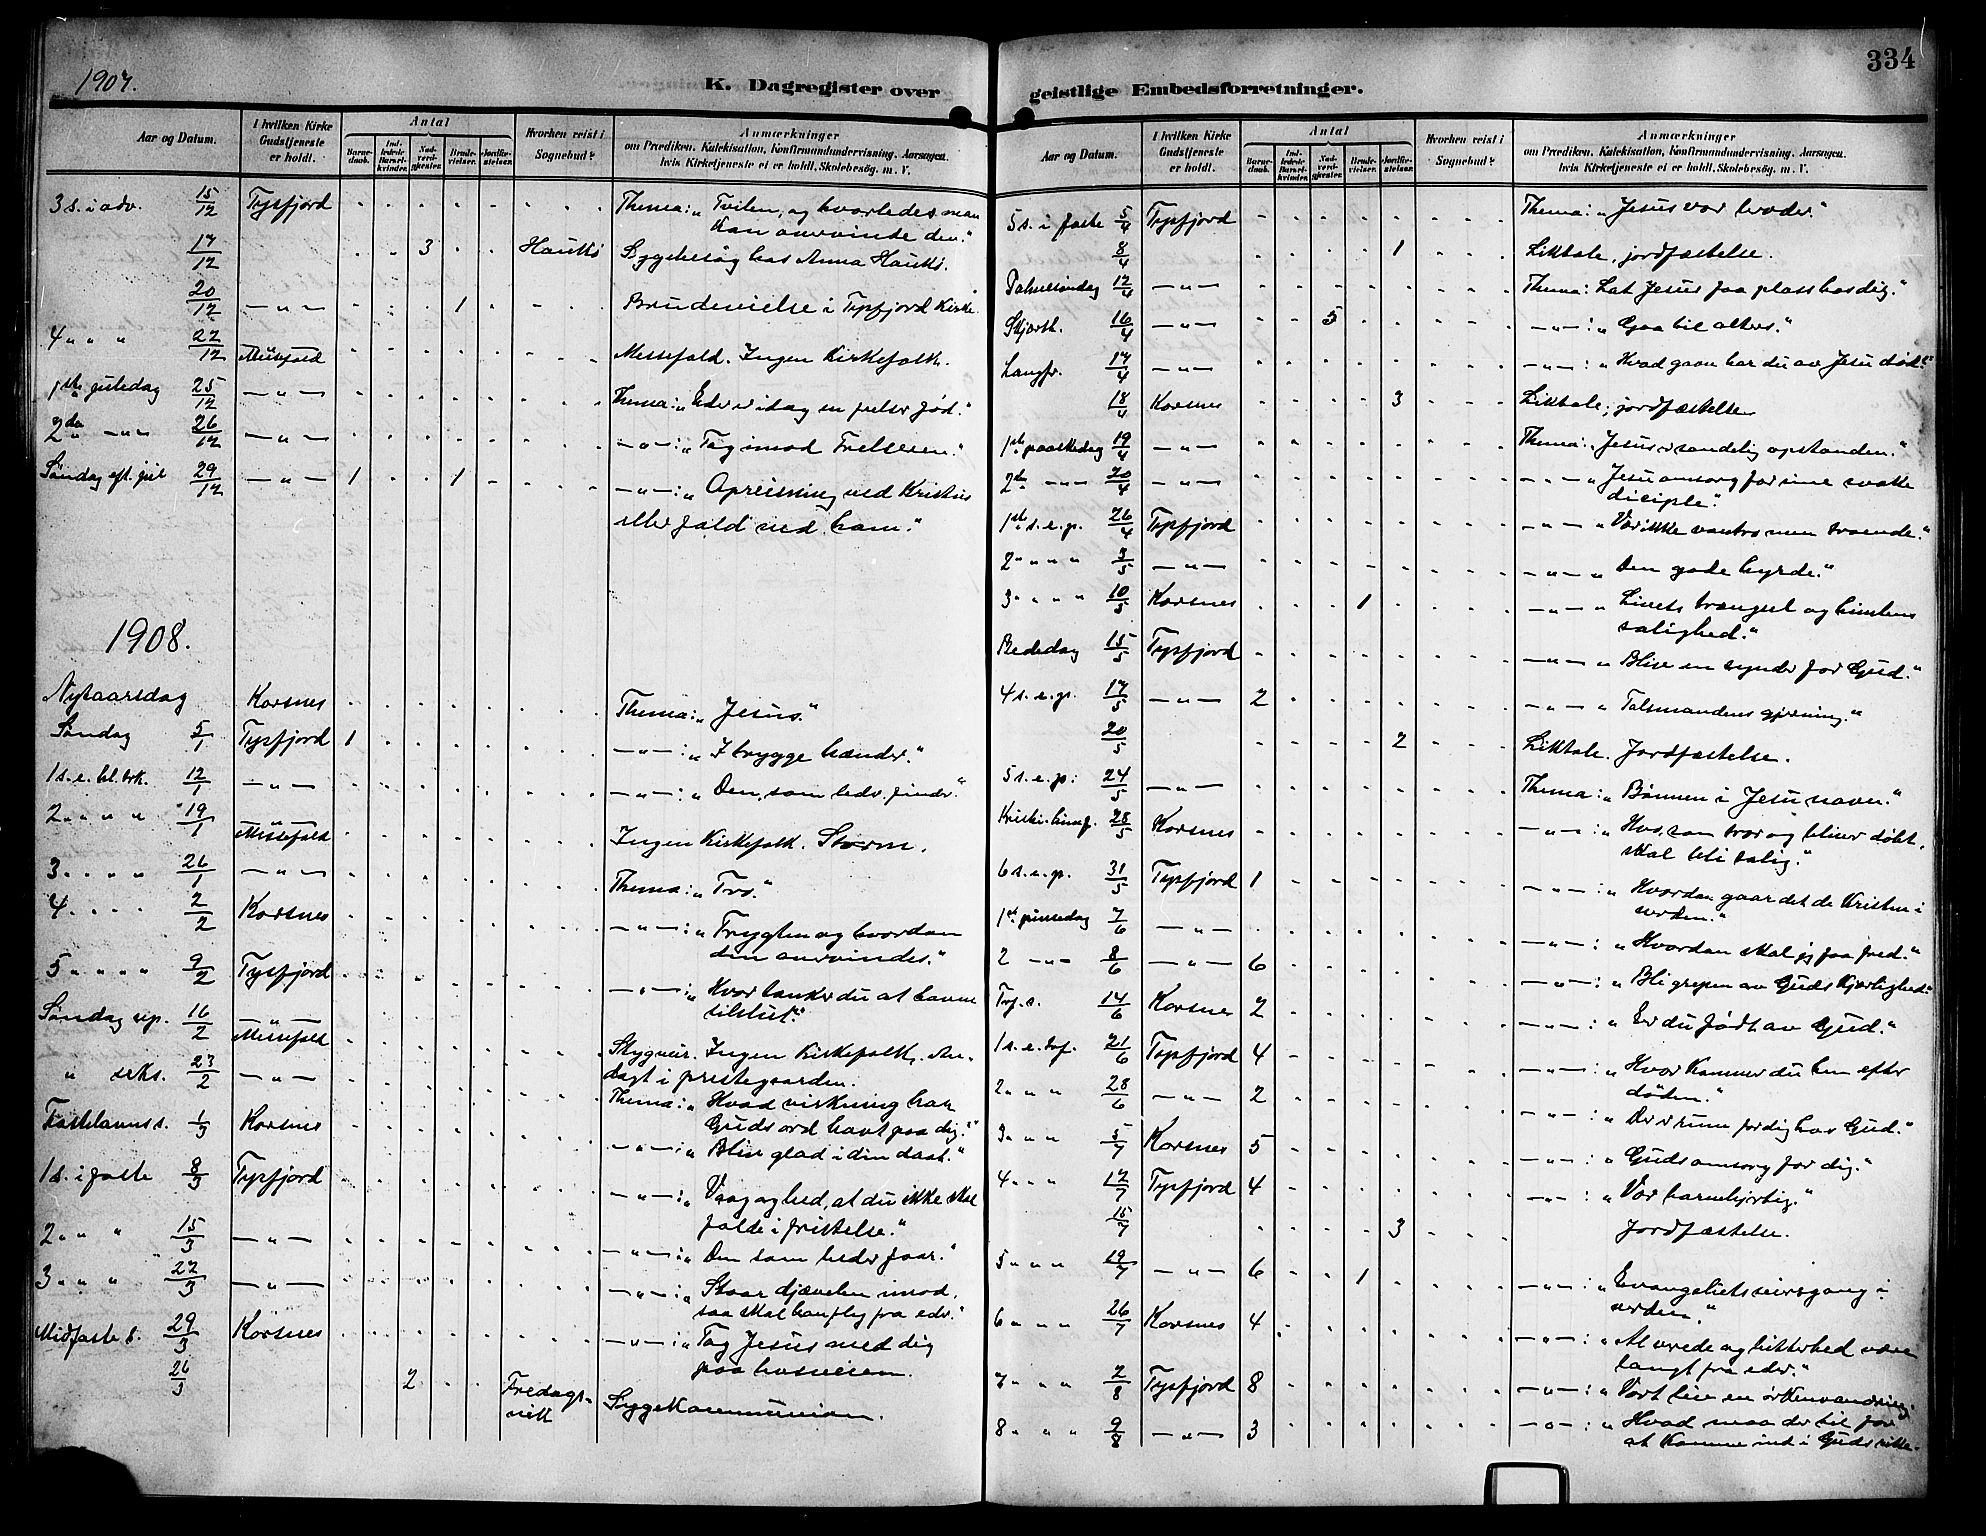 1907.
K. Dagregister over
Aar og Datum.
I hvilken Kirke Gudstjeneste er holdt.
Antal
Barnedaab.
Indledede Barselkvinder.
Nadverdgjester.
Brudevielser.
Jordfæstelser.
Hvorhen reist i Sognebud?
Anmærkninger
om Prædiken, Katekisation, Konfirmandundervisning, Aarsagen, hvis Kirketjeneste ei er holdt, Skolebesøg, m. V.
3 s. i adv. 15/12 Tysfjord Thema: „Tvilen, og hvorledes man
kan overvinde den.“
17/12 3 Haukö Sygebesøg hos Anna Haukö.
20/12 — „ — 1 Brudevielse i Tysfjord Kirke
4 „ „ 22/12 Messefald Messefald. Ingen Kirkefolk.
1ste juledag 25/12 — „ — Thema: „Eder er idag en frelser fød.“
2den — „ — 26/12 — „ — — „ —: „Tag imod Frelseren.“
Søndag eft. jul 29/12 — „ — 1 1 — „ —: „Opreisning ved Kristus
eller fald ved ham.“
1908.
Nytaarsdag Korsnes Thema: „Jesus.“
Søndag 5/1 Tysfjord 1 — „ —: „I trygge hænder.“
1 s. e. hl. trk. 12/1 — „ — — „ —: „Den, som leder, finder.“
2 „ „ „ 19/1 — „ — Messefald Ingen Kirkefolk. Storm.
3 „ „ „ 26/1 — „ — Thema: „Tro.“
4 „ „ „ 2/2 Korsnes — „ —: „Frygten og hvordan
den overvindes.“
5 „ „ „ 9/2 Tysfjord — „ —: „Hvor tænker du at havne
tilslut?“
Søndag sep. 16/2 — „ — Messefald Styggveir. Ingen Kirkefolk. An-
dagt i prestegaarden.
„ seks. 23/2 — „ — Thema: „Hvad virkning har
Guds ord havt paa dig?“
Fastelavns s. 1/3 Korsnes — „ —: „Bliv glad i din daab.“
1 s. i faste 8/3 Tysfjord — „ —: „Vaag og bed, at du ikke skal
falde i fristelse.“
2 „ „ 15/3 — „ — — „ —: „Den som beder faar.“
3 „ „ 22/3 — „ — — „ —: „Staar djævelen imod,
saa skal han fly fra eder.“
Midfaste s. 29/3 Korsnes — „ —: „Tag Jesus med dig
paa
26/3 2 Fredags-
vik Sygekommunion.
334
geistlige Embedsforretninger.
Aar og Datum.
I hvilken Kirke Gudstjeneste er holdt.
Antal
Barnedaab.
Indledede Barselkvinder.
Nadverdgjester.
Brudevielser.
Jordfæstelser.
Hvorhen reist i Sognebud?
Anmærkninger
om Prædiken, Katekisation, Konfirmandundervisning, Aarsagen, hvis Kirketjeneste ei er holdt, Skolebesøg, m. V.
5 s. i faste 5/4 Tysfjord Thema: „Jesus vor broder.“
8/4 1 Liktale, jordfæstelse.
Palmesøndag 12/4 — „ — Thema: Lat Jesus faa plass hos dig.“
Skjærth. 16/4 — „ — 5 — „ —: „Gaa til alters.“
Langfr. 17/4 — „ — — „ —: „Hvad gavn har du av Jesu død?“
18/4 Korsnes 3 Liktale, jordfæstelse
1ste paaskedag 19/4 — „ — Thema: „Jesus er sandelig opstanden.“
2den — „ — 20/4 — „ — — „ — „Jesu omsorg for sine svake
disciple.“
1ste s. e. p. 26/4 Tysfjord — „ — „Vær ikke vantro men troende.“
2 „ „ „ 3/5 — „ — — „ — „Den gode hyrde.“
3 „ „ „ 10/5 Korsnes 1 — „ — „Livets trængsel og himlens
salighed.“
Bededag 15/5 Tysfjord — „ — „Bliv en synder for Gud.“
4 s. e. p. 17/5 — „ — 2 — „ — „Talsmandens gjerning.“
20/5 2 Liktale. Jordfæstelse.
5 s. e. p. 24/5 — „ — Thema: „Bønnen i Jesu navn.“
Kristi himf. 28/5 Korsnes — „ —: „Hvo, som tror og bliver døbt,
skal bli salig.“
6 s. e. p. 31/5 Tysfjord 1 — „ —: „Hvordan gaar det de kristne i
verden.“
1ste pinsedag 7/6 — „ — — „ —: „Hvordan skal jeg faa fred.“
2 — „ — 8/6 — „ — 6 — „ —: „Bli grepen av Guds kjærlighed.“
Tref. s. 14/6 Korsnes 2 — „ —: „Er du født av Gud.“
1 s. e. tref. 21/6 Tysfjord 4 — „ —: „Hvor kommer du hen efter
døden.“
2 „ „ 28/6 — „ — 2 — „ —: „Der er rum for dig hos Gud.“
3 „ „ 5/7 Korsnes 5 — „ —: „Guds omsorg for dig.“
4 „ „ 12/7 Tysfjord 4 — „ —: „Vær barmhjertig.“
15/7 3 Jordfæstelse.
5 „ „ 19/7 — „ — 6 1 — „ —: „Evangeliets seiersgang i
verden.“
6 „ „ 26/7 Korsnes 4 — „ —: „Al vrede og bitterhed være
langt fra eder.“
7 „ „ 2/8 Tysfjord 8 — „ —: „Vort liv en ørkenvandring.
8 „ „ 9/8 — „ — 3 — „ —: „Hvad maa der til for
at komme ind i Guds rike.